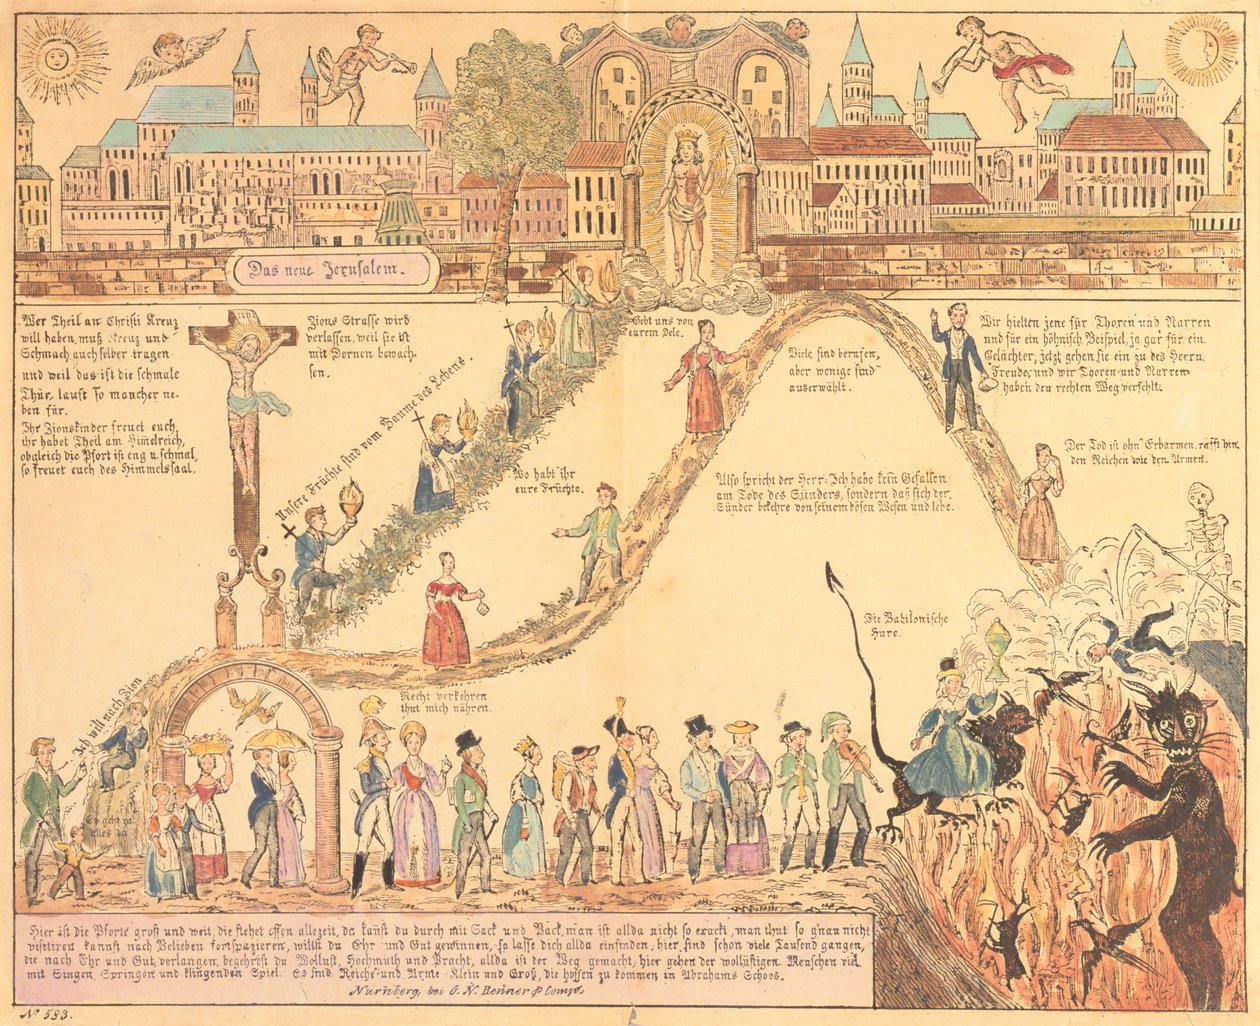 Das neue Jerusalem.
Wer Theil an Christi Kreuz
will haben, muß Kreuz und
Schmach auch selber tragen
und weil das ist die schmale
Thür, lauft so mancher ne-
ben für.
Ihr Zionskinder freuet euch,
ihr habet Theil am Himelreich,
obgleich die Pfort ist eng u. schmal,
so freuet euch des Himmelsaal.
Zions Strasse wird
verlassen, weil sie ist
mit Dornen bewach-
sen.
Unsere Früchte sind vom Baume des Lebens.
Gebt uns von
eurem Oele.
Wo habt ihr
eure Früchte.
Viele sind berufen,
aber wenige sind
auserwählt.
Wir hielten jene für Thoren und Narren
und für ein höhnisch Beispiel, ja gar für ein
Gelächter, jetzt gehen sie ein zu des Herrn
Freude, und wir Thoren und Narren
haben den rechten Weg verfehlt.
Der Tod ist ohn' Erbarmen, rafft hin
den Reichen wie den Armen.
Also spricht der Herr: Ich habe kein Gefallen
am Tode des Sünders, sondern daß sich der
Sünder bekehre von seinem bösen Wesen und lebe.
Die Babilonische
Hure.
Ich will nach Zion
Recht verkehren
thut mich nähren.
Es geht ja
alles da
Hier ist die Pforte groß und weit, die stehet offen allezeit, da kañst du durch mit Sack und Pack, man ist allda nicht so exackt, man thut so g'nau nicht
visitiren kannst nach Belieben fortspazieren, willst du Ehr und Gut gewinnen, so lasse dich allda einfinden; hier sind schon viele Tausend gangen,
die nach Ehr und Gut verlangen, begehrst du Wollust, Hochmuth und Pracht, allda ist der Weg gemacht, hier gehen der wollüstigen Menschen viel
mit Singen, Springen und klingenden Spiel. Es sind Reiche und Arme Klein und Groß, die hoffen zu kommen in Abrahams Schoos.
Nürnberg, bei G. N. Renner & Comp.
No. 533.